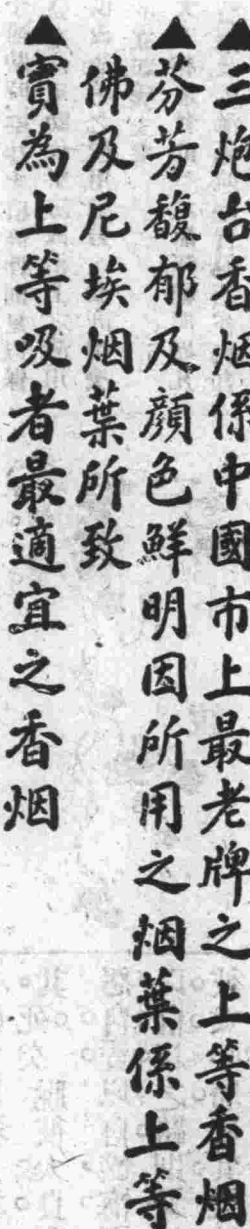 ▲三炮台香烟係中國市上最老牌之上等香烟
▲芬芳馥郁及顔色鮮明因所用之烟葉係上等
佛及尼埃烟葉所致
▲實為上等吸者最適宜之香烟